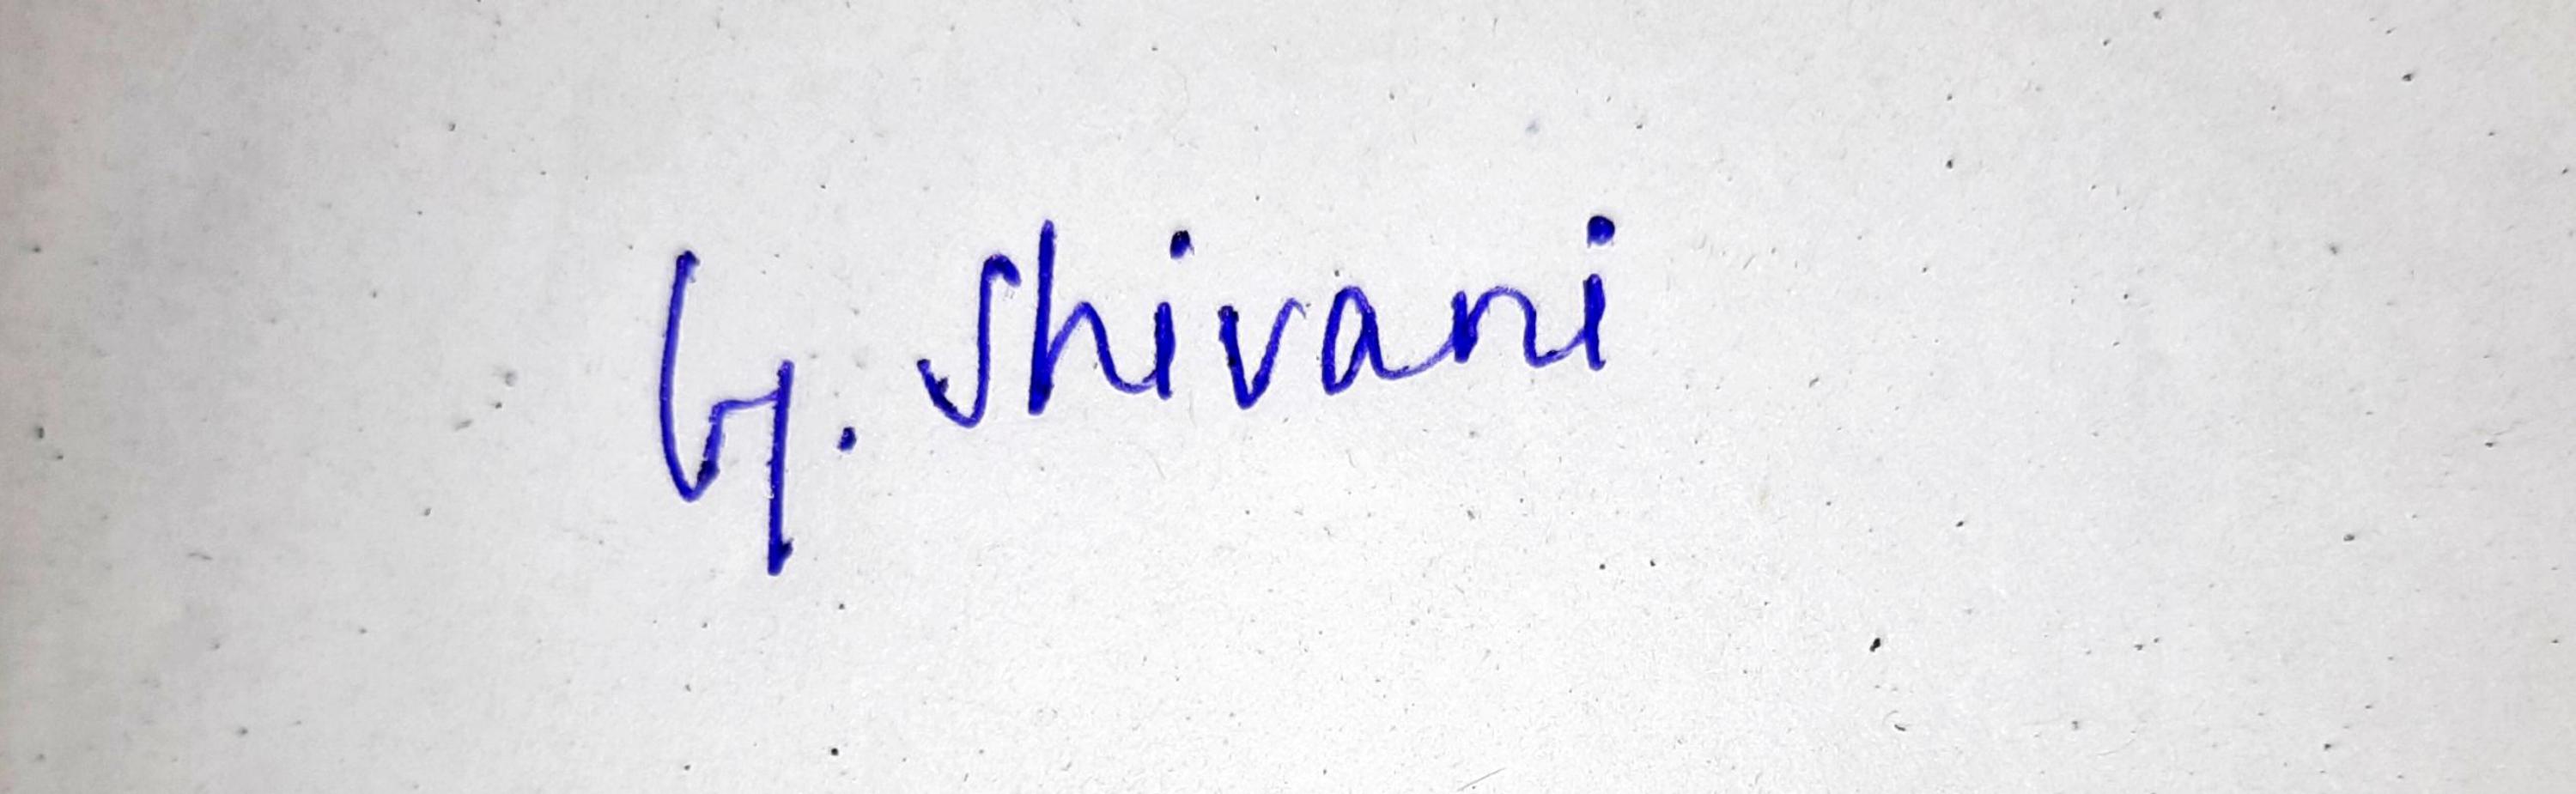 G. Shivani